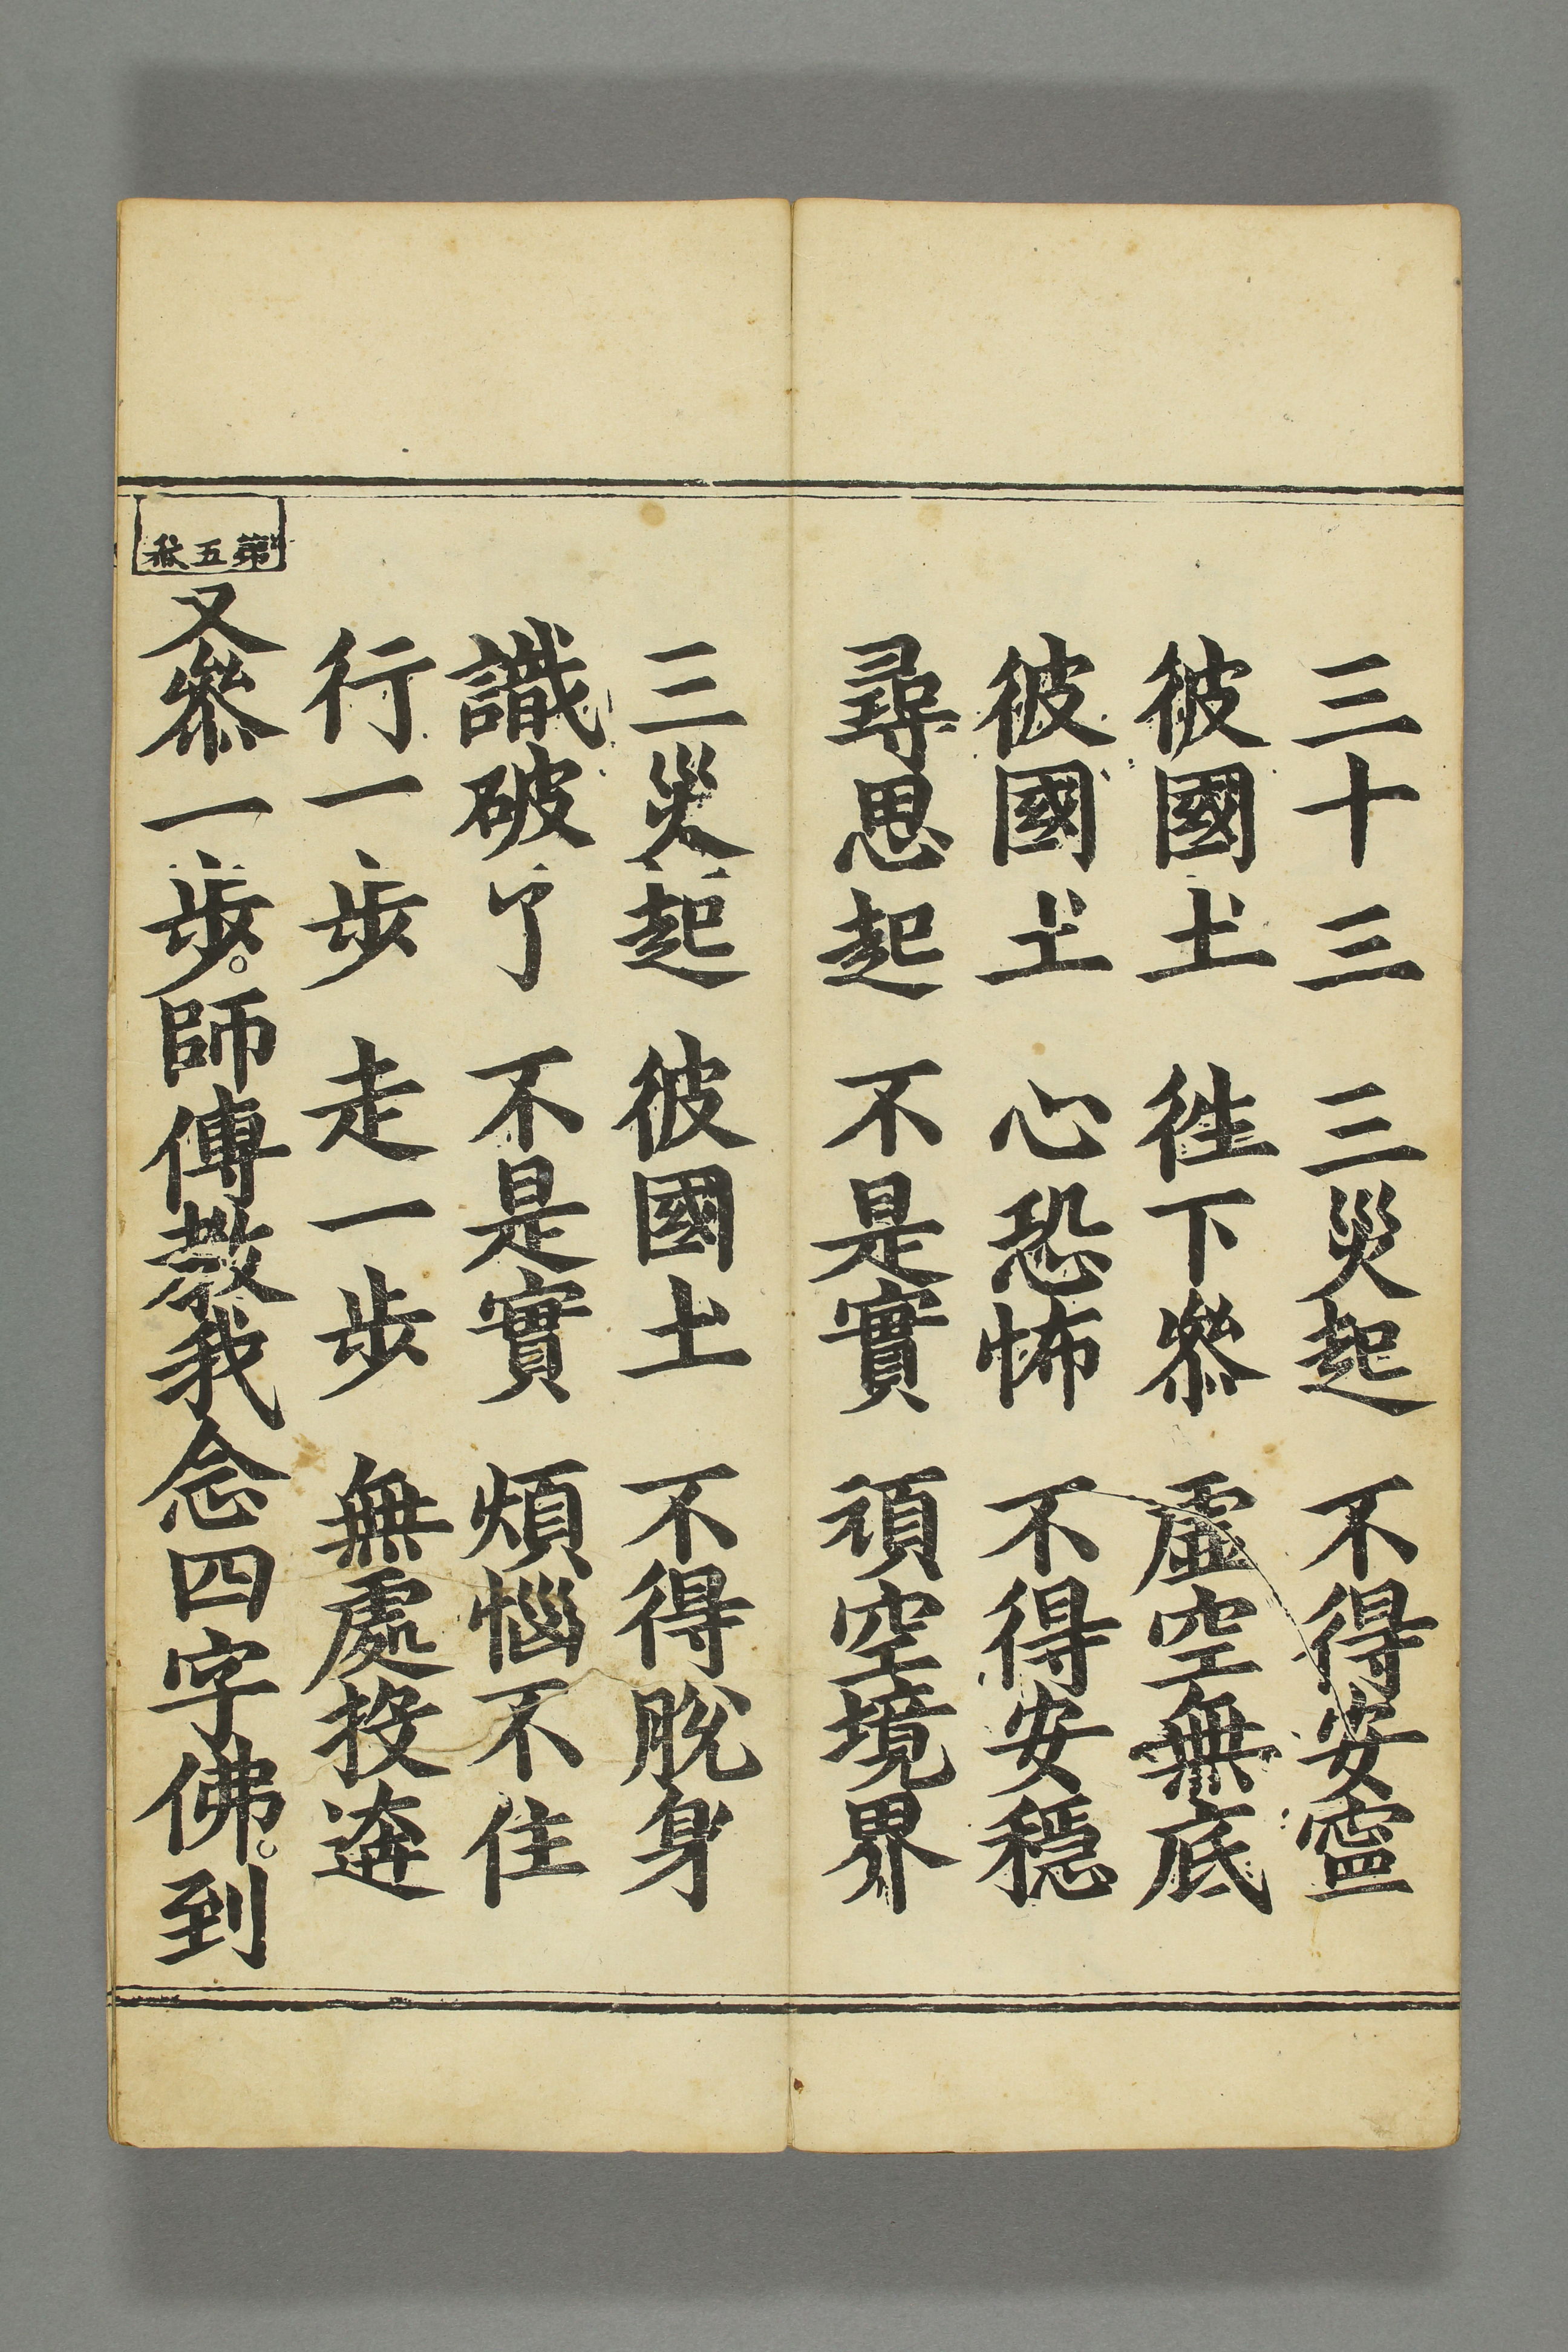 三十三　三災起　不得安寧
彼國土　徃下叅　虛空無底
彼國土　心恐怖　不得安穩
尋思起　不是實　頑空境界
三災起　彼國土　不得脫身
識破了　不是實　煩惱不住
行一步　走一步　無處投逩
第五叅
又叅一步。師傳教我念四字佛。到